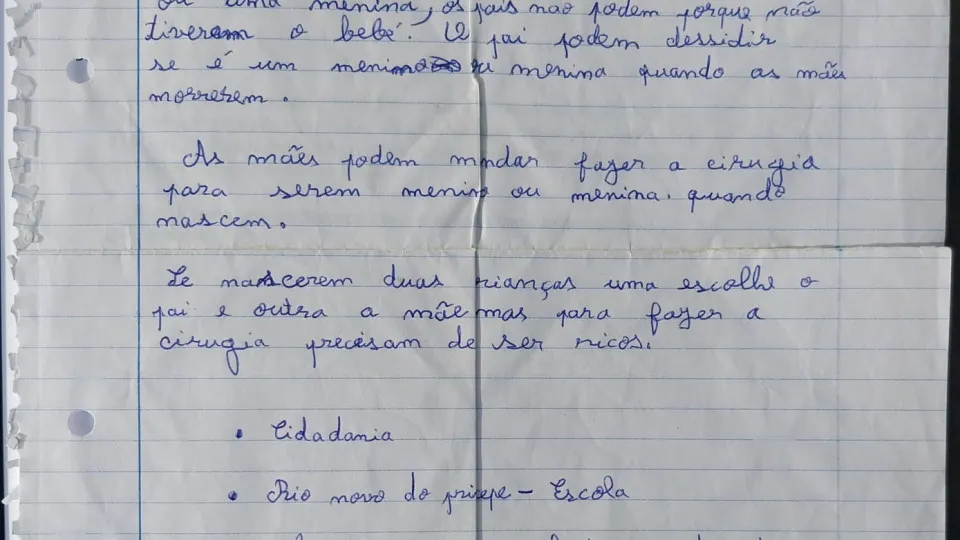 ou uma menina, os pais não podem porque não
tiveram o bebé. O pai podem dessidir
se é um menino ou menina quando as mães
morrerem.
As mães podem mandar fazer a cirugia
para serem menino ou menina. quando
nascem.
Se nascerem duas crianças uma escolhe o
pai e outra a mãe mas para fazer a
cirugia precisam de ser ricos.
• Cidadania
• Rio novo do prisepe - Escola